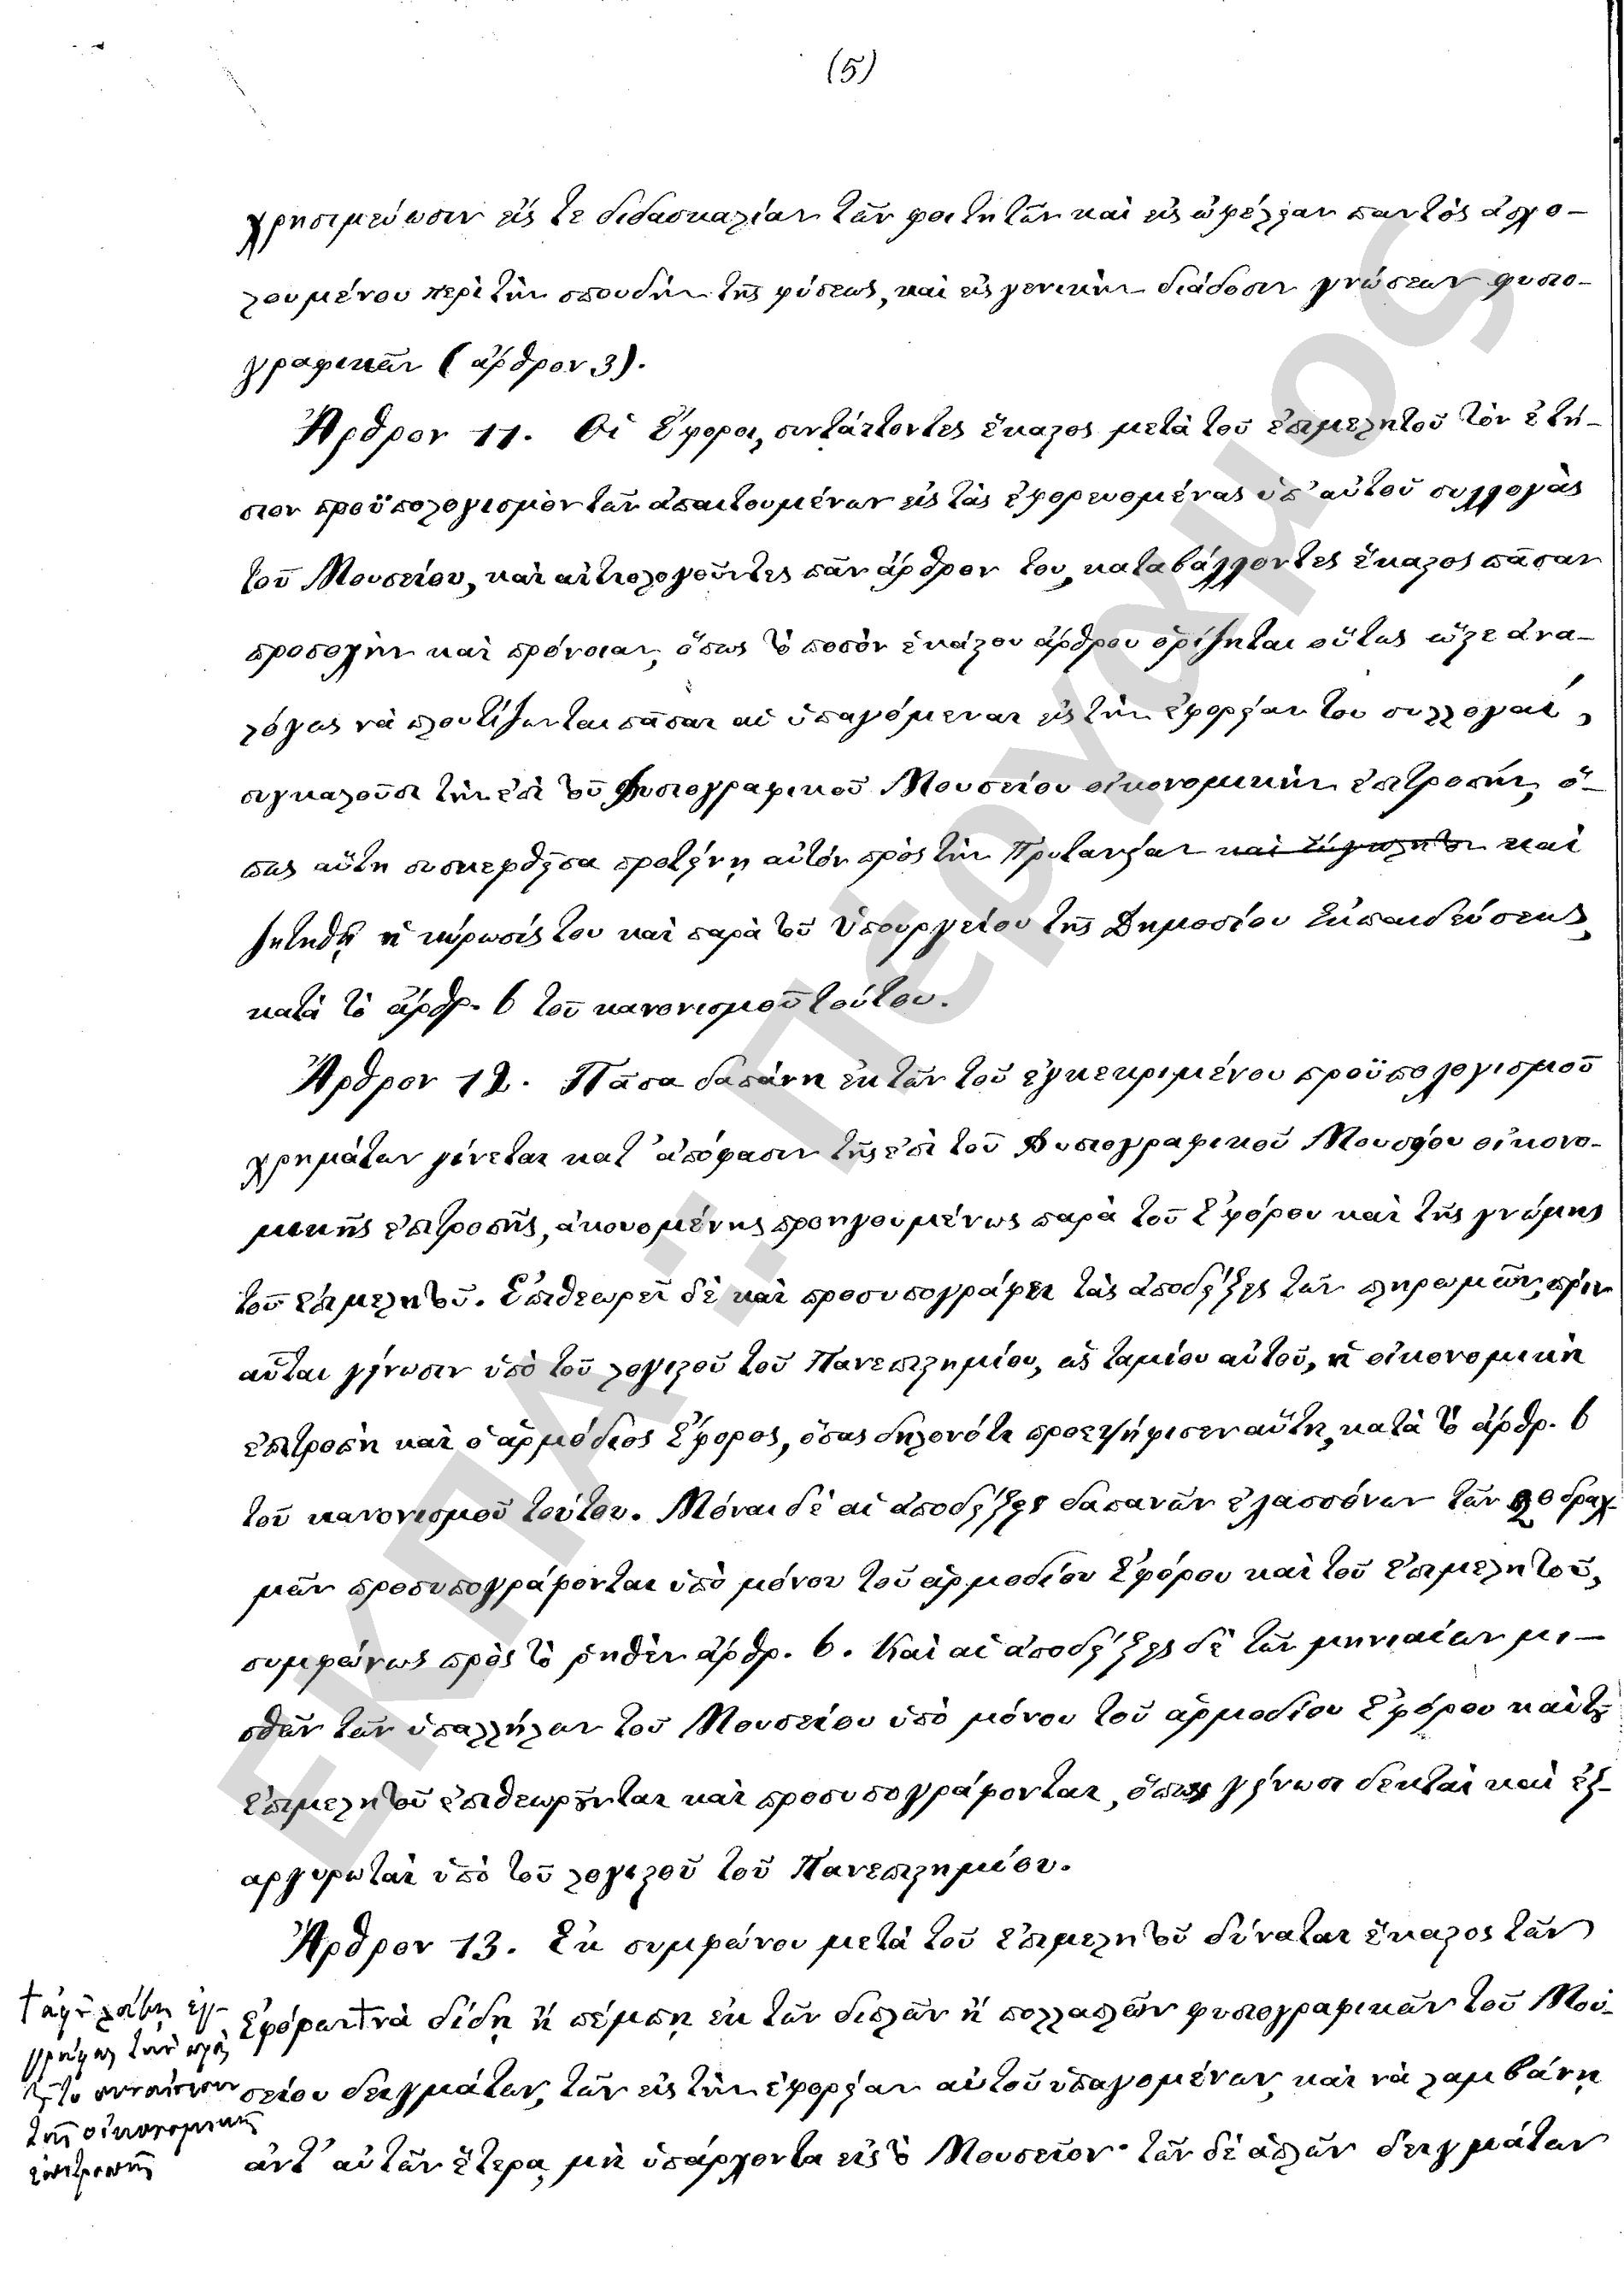 (5)
χρησιμεύωσιν εἴς τε διδασκαλίαν τῶν φοιτητῶν καὶ εἰς ὠφέλειαν παντὸς ἀσχο-
λουμένου περὶ τὴν σπουδὴν τῆς φύσεως, καὶ εἰς γενικὴν διάδοσιν γνώσεων φυσιο-
γραφικῶν (ἄρθρον 3).
Ἄρθρον 11. Οἱ Ἔφοροι, συντάττοντες ἕκαστος μετὰ τοῦ ἐπιμελητοῦ τὸν ἐτή-
σιον προϋπολογισμὸν τῶν ἀπαιτουμένων εἰς τὰς ἐφορευομένας ὑπ' αὐτοῦ συλλογὰς
τοῦ Μουσείου, καὶ αἰτιολογοῦντες πᾶν ἄρθρον του, καταβάλλοντες ἕκαστος πᾶσαν
προσοχὴν καὶ πρόνοιαν, ὅπως τὸ ποσὸν ἑκάστου ἄρθρου ὁρίζηται οὕτως ὥστε ἀνα-
λόγως νὰ πλουτίζωνται πᾶσαι αἱ ὑπαγόμεναι εἰς τὴν ἐφορείαν του συλλογαί,
συγκαλοῦσι τὴν ἐπὶ τοῦ Φυσιογραφικοῦ Μουσείου οἰκονομικὴν ἐπιτροπήν, ὅ-
πως αὕτη συσκεφθεῖσα προτείνῃ αὐτὸν πρὸς τὴν Πρυτανείαν καὶ
ζητηθῇ ἡ κύρωσίς του καὶ παρὰ τοῦ Ὑπουργείου τῆς Δημοσίου Ἐκπαιδεύσεως,
κατὰ τὸ ἄρθρ. 6 τοῦ κανονισμοῦ τούτου.
Ἄρθρον 12. Πᾶσα δαπάνη ἐκ τῶν τοῦ ἐγκεκριμένου προϋπολογισμοῦ
χρημάτων γίνεται κατ' ἀπόφασιν τῆς ἐπὶ τοῦ Φυσιογραφικοῦ Μουσείου οἰκονο-
μικῆς ἐπιτροπῆς, ἀκουομένης προηγουμένως παρὰ τοῦ Ἐφόρου καὶ τῆς γνώμης
τοῦ ἐπιμελητοῦ. Ἐπιθεωρεῖ δὲ καὶ προσυπογράφει τὰς ἀποδείξεις τῶν πληρωμῶν, πρὶν
αὗται γείνωσιν ὑπὸ τοῦ λογιστοῦ τοῦ Πανεπιστημίου, ὡς ταμίου αὐτοῦ, ἡ οἰκονομικὴ
ἐπιτροπὴ καὶ ὁ ἁρμόδιος Ἔφορος, ὅσας δηλονότι προεψήφισεν αὕτη, κατὰ τὸ ἄρθρ. 6
τοῦ κανονισμοῦ τούτου. Μόναι δὲ αἱ ἀποδείξεις δαπανῶν ἐλασσόνων τῶν 20 δραχ-
μῶν προσυπογράφονται ὑπὸ μόνου τοῦ ἁρμοδίου Ἐφόρου καὶ τοῦ Ἐπιμελητοῦ,
συμφώνως πρὸς τὸ ῥηθὲν ἄρθρ. 6. Καὶ αἱ ἀποδείξεις δὲ τῶν μηνιαίων μι-
σθῶν τῶν ὑπαλλήλων τοῦ Μουσείου ὑπὸ μόνου τοῦ ἁρμοδίου Ἐφόρου καὶ τοῦ
Ἐπιμελητοῦ ἐπιθεωροῦνται καὶ προσυπογράφονται, ὅπως γείνωσι δεκταὶ καὶ ἐξ-
αργυρωταὶ ὑπὸ τοῦ λογιστοῦ τοῦ Πανεπιστημίου.
Ἄρθρον 13. Ἐκ συμφώνου μετὰ τοῦ Ἐπιμελητοῦ δύναται ἕκαστος τῶν
Ἐφόρων † νὰ δίδῃ ἢ πέμπῃ ἐκ τῶν διπλῶν ἢ πολλαπλῶν φυσιογραφικῶν τοῦ Μου-
σείου δειγμάτων, τῶν εἰς τὴν ἐφορείαν αὐτοῦ ὑπαγομένων, καὶ νὰ λαμβάνῃ
ἀντ' αὐτῶν ἕτερα, μὴ ὑπάρχοντα εἰς τὸ Μουσεῖον· τῶν δὲ ἁπλῶν δειγμάτων
† ἀφ' οὗ λάβῃ ἐγ-
γράφως τὴν πρὸς
τοῦτο συναίνεσιν
τῆς οἰκονομικῆς
ἐπιτροπῆς
ΕΚΠΑ: Πέργαμος